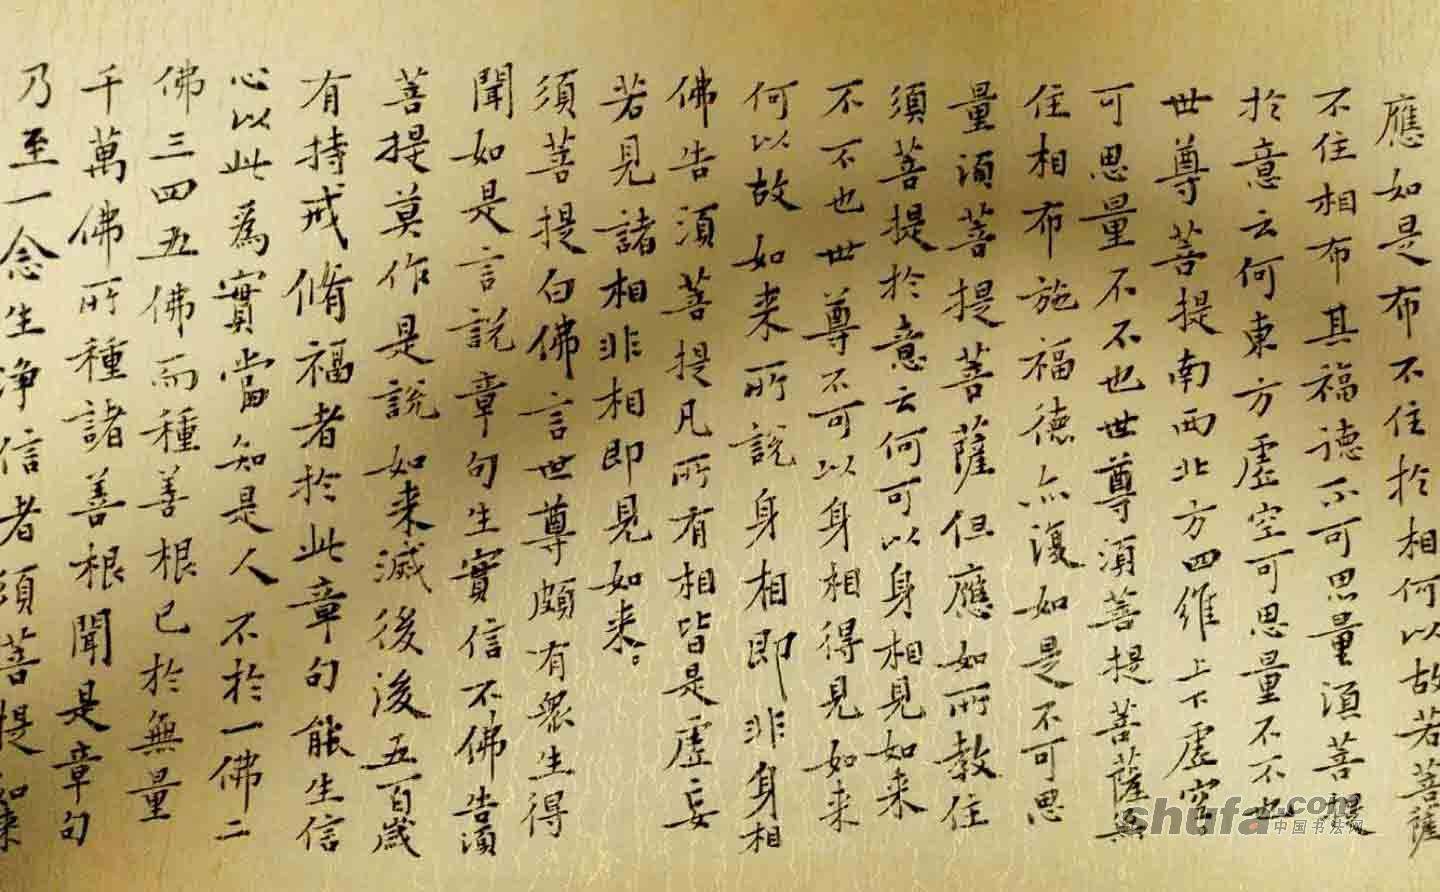 應如是布不住於相何以故若菩薩
不住相布其福德不可思量須菩提
於意云何東方虛空可思量不不也
世尊菩提南西北方四維上下虛空
可思量不不也世尊須菩提菩薩無
住相布施福德亦復如是不可思
量須菩提菩薩但應如所教住
須菩提於意云何可以身相見如来
不不也世尊不可以身相得見如来
何以故如来所說身相即非身相
佛告須菩提凡所有相皆是虛妄
若見諸相非相即見如来。
須菩提白佛言世尊頗有眾生得
聞如是言說章句生實信不佛告須
菩提莫作是說如来滅後後五百歲
有持戒脩福者於此章句能生信
心以此為實當知是人不於一佛二
佛三四五佛而種善根已於無量
千萬佛所種諸善根聞是章句
乃至一念生淨信者須菩提如來
shufa.com
中国书法网